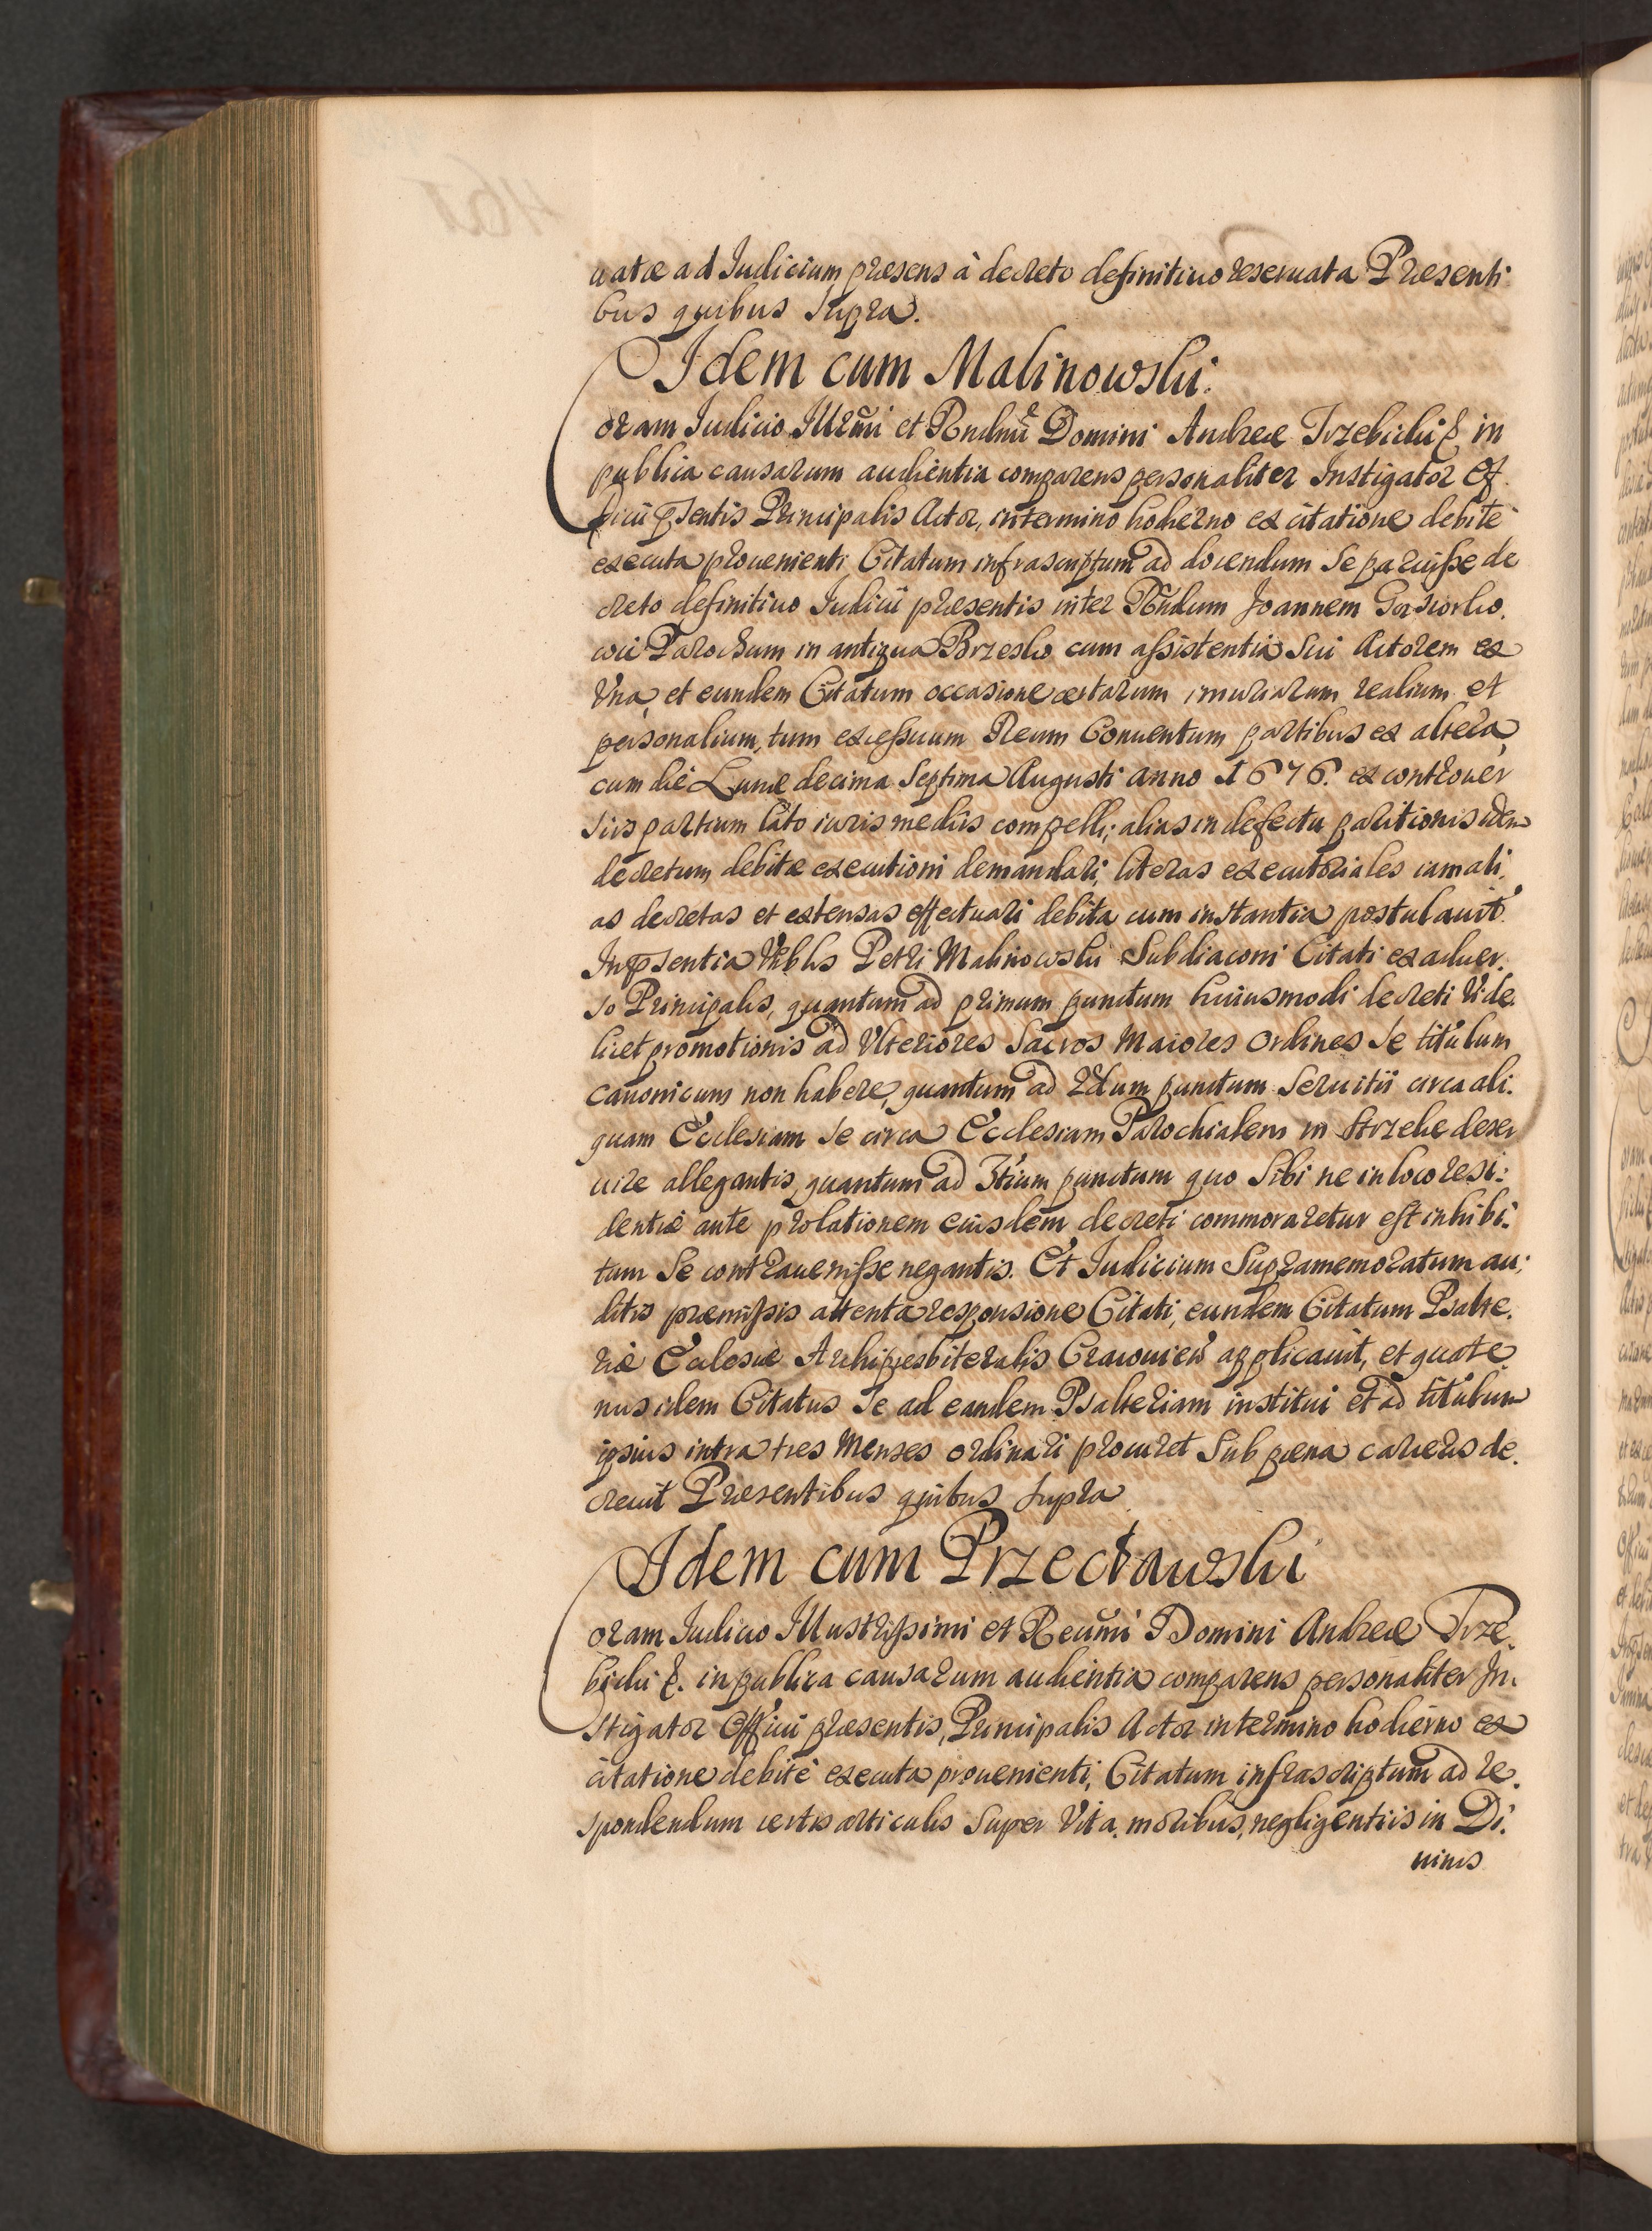 uatæ ad Iudicium præsens à decreto definitiuo reseruata Præsenti
bus quibus Supra.
Idem cum Malinowski.
Coram Iudicio Illrmi et Rndmi Domini Andreæ Trzebicki & in
publica causarum audientia comparens personaliter Instigator Of
ficii psentis Principalis Actor, in termino hodierno ex citatione debite
executa prouenienti Citatum infrascriptum ad docendum Se paruisse de
creto definitiuo Iudicii præsentis inter Rndum Joannem Gorsiorko
wic Parochum in antiqua Brzesko cum assistentia Sui Actorem ex
Vna, et eundem Citatum occasione certarum iniuriarum realium et
personalium, tum excessuum Reum Conuentum partibus ex altera,
cum die Lunæ decima Septima Augusti anno 1676. ex controuer
siis partium lato iuris mediis compelli; alias in defectu paritionis idem
decretum debitæ executioni demandari, literas executoriales iam ali,
as decretas et extensas effectuari debita cum instantia postulauit.
In psentia Vrblis Petri Malinowski Subdiaconi Citati ex aduer,
so Principalis, quantum ad primum punctum huiusmodi decreti Vide
licet promotionis ad Vlteriores Sacros Maiores Ordines Se titulum
canonicum non habere, quantum ad 2dum punctum Seruitii circa ali.
quam Ecclesiam Se circa Ecclesiam Parochialem in Strzelce deser
uire allegantis, quantum ad 3tium punctum quo Sibi ne in loco resi:
dentiæ ante prolationem eiusdem decreti commoraretur est inhibi.
tum Se contrauenisse negantis. Et Iudicium Supramemoratum au:
ditis præmissis attenta responsione Citati, eundem Citatum Psalte.
riæ Ecclesiæ Archipresbiteralis Cracouien applicauit, et quate
nus idem Citatus Se ad eandem Psalteriam institui et ad titulum
ipsius intra tres Menses ordinari procuret Sub pœna carceris de.
creuit Præsentibus quibus Supra
Idem cum Przecławski
Coram Iudicio Illustrissimi et Reumi Domini Andreæ Trze.
bicki &. in publica causarum audientia comparens personaliter In.
stigator Officii præsentis, Principalis Actor in termino hodierno ex
citatione debite executa prouenienti, Citatum infrascriptum ad re.
spondendum certis articulis Super Vita, moribus, negligentiis in Di.
uinis